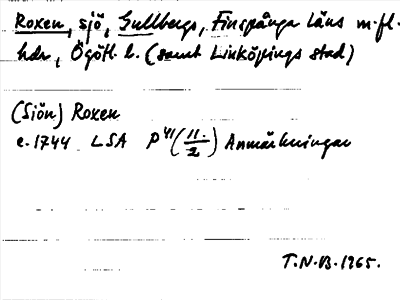 Roxen, sjö, Gullbergs, Finspånga läns m.fl.
hdr, Ögötl. l. (samt Linköpings stad)
(Siön) Roxen
c. 1744 LSA P VI (11:/2) Anmärkningar
T.N-B. 1965.